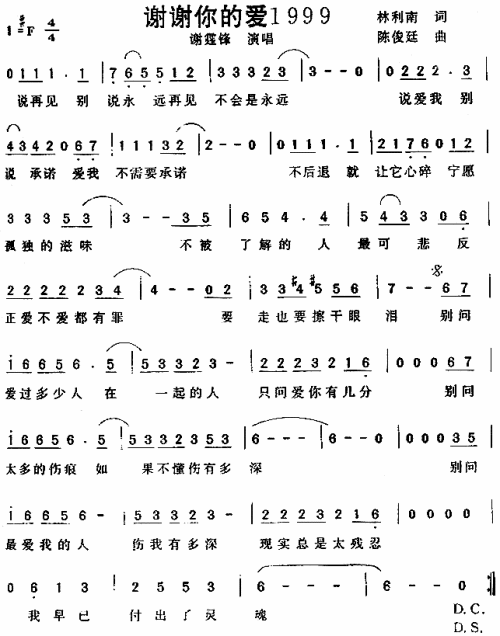 谢谢你的爱1999
1=#F 4/4
林利南 词
谢霆锋 演唱
陈俊廷 曲
0 1 1 1 . 1 | 7 6 5 5 1 2 | 3 3 3 2 3 | 3 - - 0 | 0 2 2 2 . 3 |
说再见 别 说永 远再见 不会是永远 说爱我 别
4 3 4 2 0 6 7 | 1 1 1 3 2 | 2 - - 0 | 0 1 1 1 . 1 | 2 1 7 6 0 1 2 |
说 承诺 爱我 不需要承诺 不后退 就 让它心碎 宁愿
3 3 3 5 3 | 3 - - 3 5 | 6 5 4 . 4 | 5 4 3 3 0 6 |
孤独的滋味 不被 了解的 人 最可 悲反
2 2 2 2 2 3 4 | 4 - - 0 2 | 3 3 #4 #5 5 6 | 7 - - 6 7 |
正爱不爱都有罪 要 走也要擦干眼 泪 别问
i 6 6 5 6 . 5 | 5 3 3 2 3 - | 2 2 2 3 2 1 6 | 0 0 0 6 7 |
爱过多少人 在 一起的人 只问爱你有几分 别问
i 6 6 5 6 . 5 | 5 3 3 2 3 5 3 | 6 - - - | 6 - - 0 | 0 0 0 3 5 |
太多的伤痕 如 果不懂伤有多 深 别问
i 6 6 5 6 - | 5 3 3 2 3 - | 2 2 2 3 2 1 6 | 0 0 0 0 |
最爱我的人 伤我有多深 现实总是太残忍
0 6 1 3 | 2 5 5 3 | 6 - - - | 6 - - 0 :||
我早已 付出了灵 魂
D.C.
D.S.